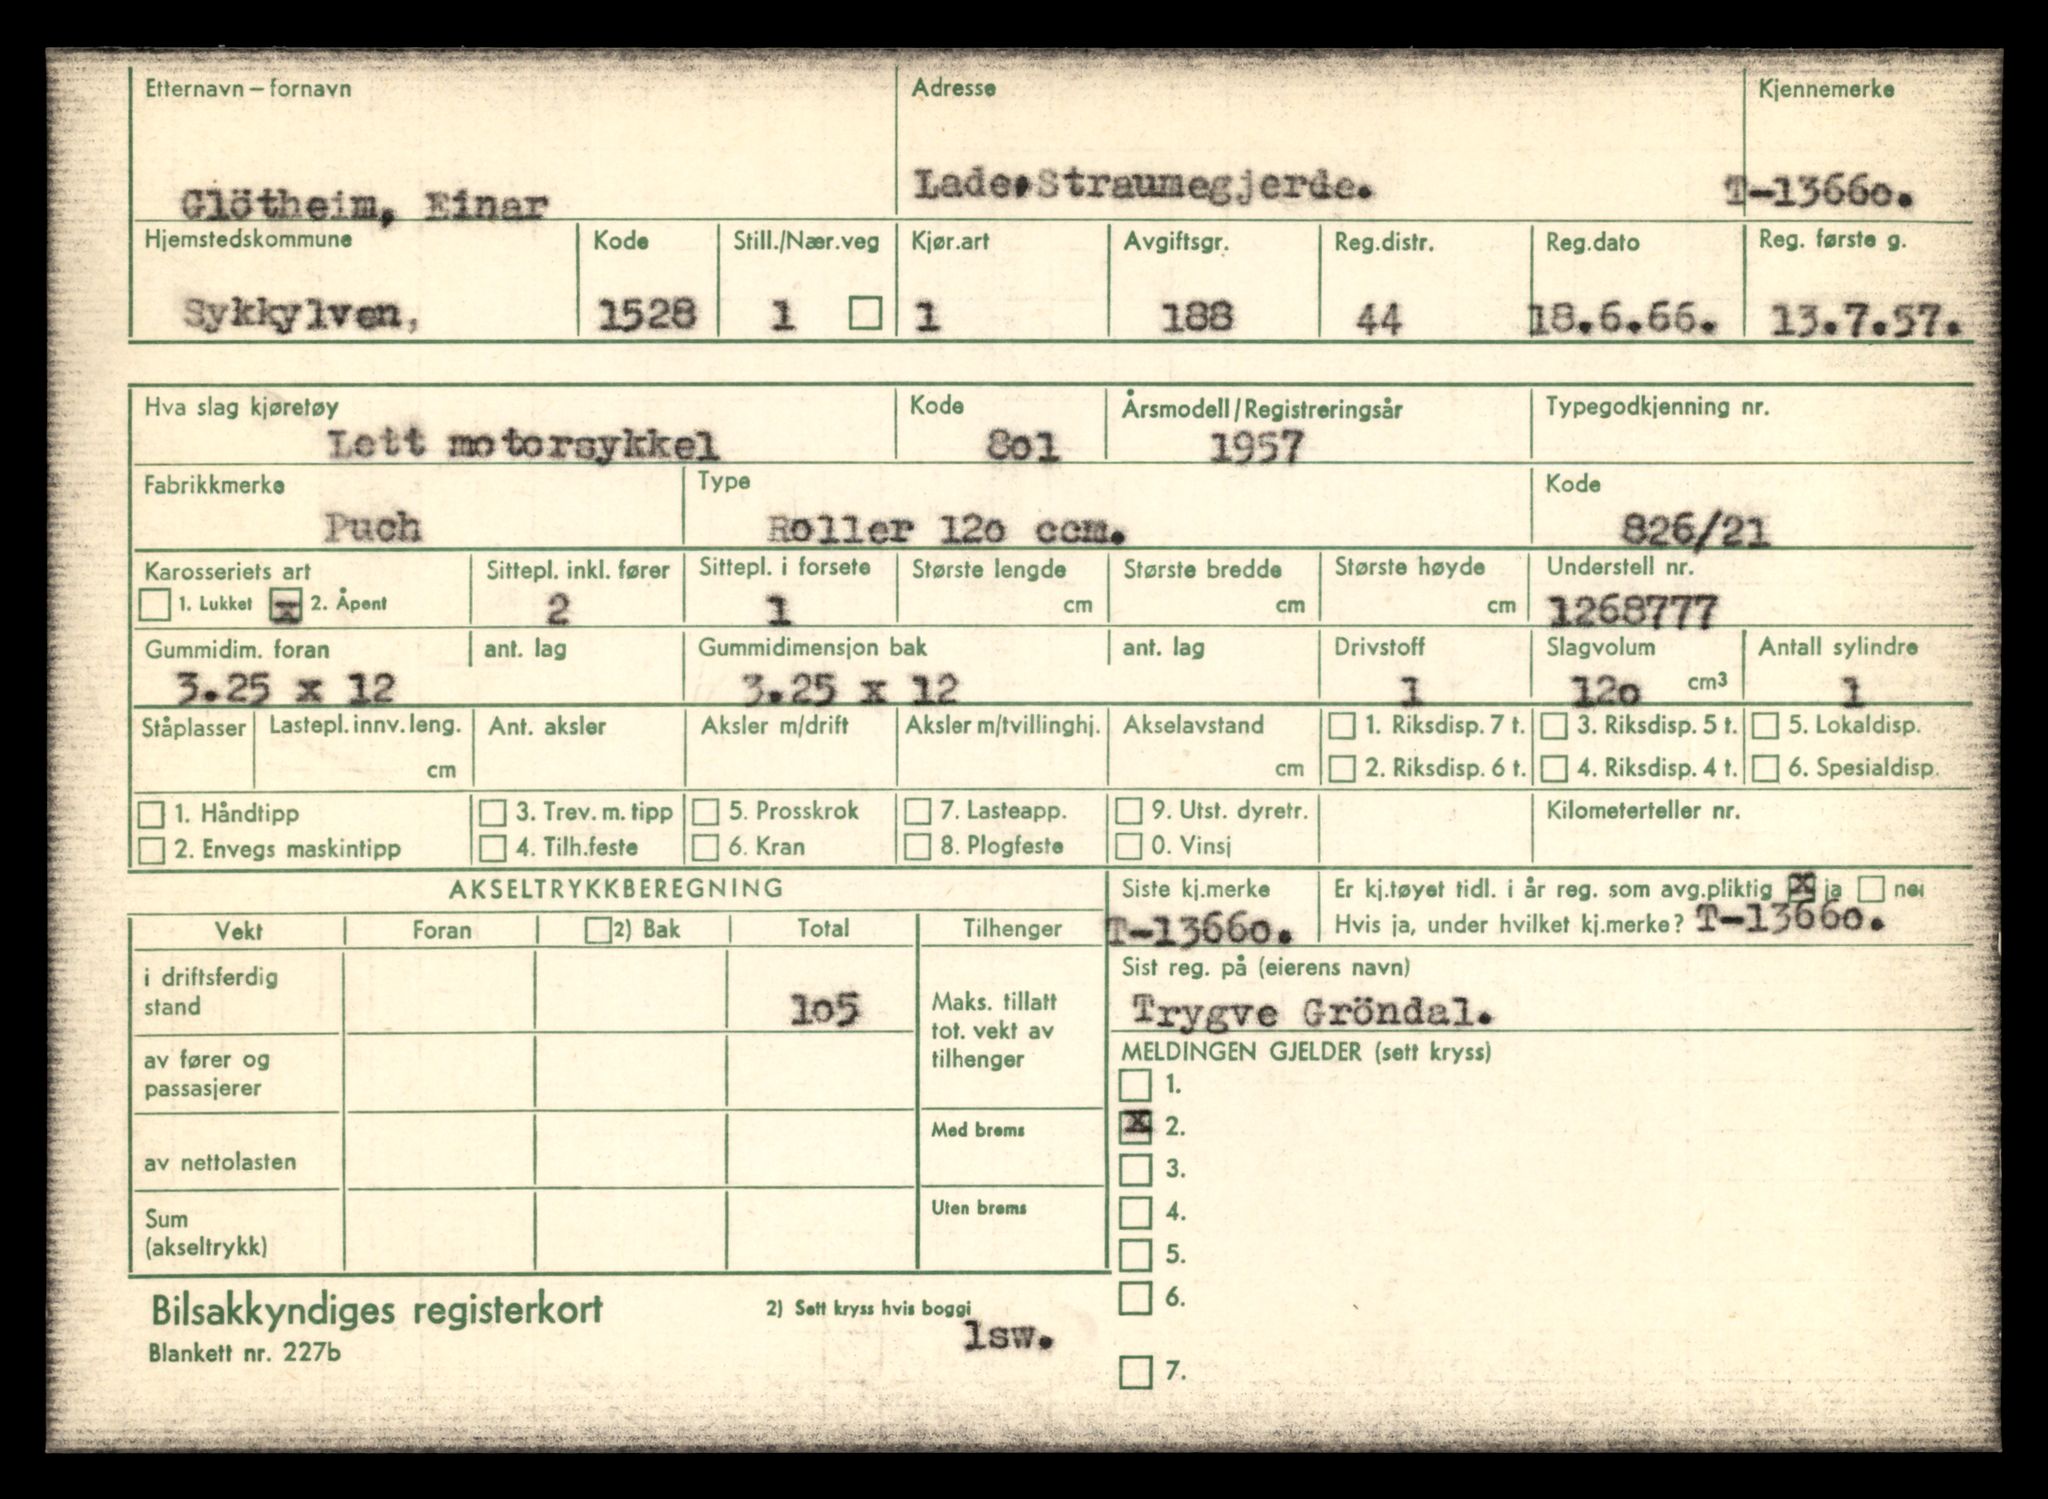 Etternavn – fornavn Adresse Kjennemerke
Glötheim, Einar Lade, Straumegjerde. T-1366o.
Hjemstedskommune Kode Still./Nær.veg Kjør.art Avgiftsgr. Reg.distr. Reg.dato Reg. første g.
Sykkylven, 1528 1 1 188 44 18.6.66. 13.7.57.
Hva slag kjøretøy Kode Årsmodell/Registreringsår Typegodkjenning nr.
Lett motorsykkel 8o1 1957
Fabrikkmerke Type Kode
Puch Roller 12o ccm. 826/21
Karosseriets art Sittepl. inkl. fører Sittepl. i forsete Største lengde Største bredde Største høyde Understell nr.
1. Lukket x 2. Åpent 2 1 cm cm cm 1268777
Gummidim. foran ant. lag Gummidimensjon bak ant. lag Drivstoff Slagvolum Antall sylindre
3.25 x 12 3.25 x 12 1 12o cm³ 1
Ståplasser Lastepl. innv. leng. Ant. aksler Aksler m/drift Aksler m/tvillinghj. Akselavstand 1. Riksdisp. 7 t. 3. Riksdisp. 5 t. 5. Lokaldisp.
cm cm 2. Riksdisp. 6 t. 4. Riksdisp. 4 t. 6. Spesialdisp.
1. Håndtipp 3. Trev. m. tipp 5. Prosskrok 7. Lasteapp. 9. Utst. dyretr. Kilometerteller nr.
2. Envegs maskintipp 4. Tilh.feste 6. Kran 8. Plogfeste 0. Vinsj
AKSELTRYKKBEREGNING Siste kj.merke Er kj.tøyet tidl. i år reg. som avg.pliktig x ja nei
Vekt Foran 2) Bak Total Tilhenger T-1366o. Hvis ja, under hvilket kj.merke? T-1366o.
i driftsferdig stand 1o5 Maks. tillatt tot. vekt av tilhenger
Sist reg. på (eierens navn)
Trygve Gröndal.
av fører og passasjerer
MELDINGEN GJELDER (sett kryss)
1.
Med brems x 2.
av nettolasten 3.
Sum (akseltrykk) Uten brems 4.
5.
6.
Bilsakkyndiges registerkort 2) Sett kryss hvis boggi
lsw.
Blankett nr. 227b
7.